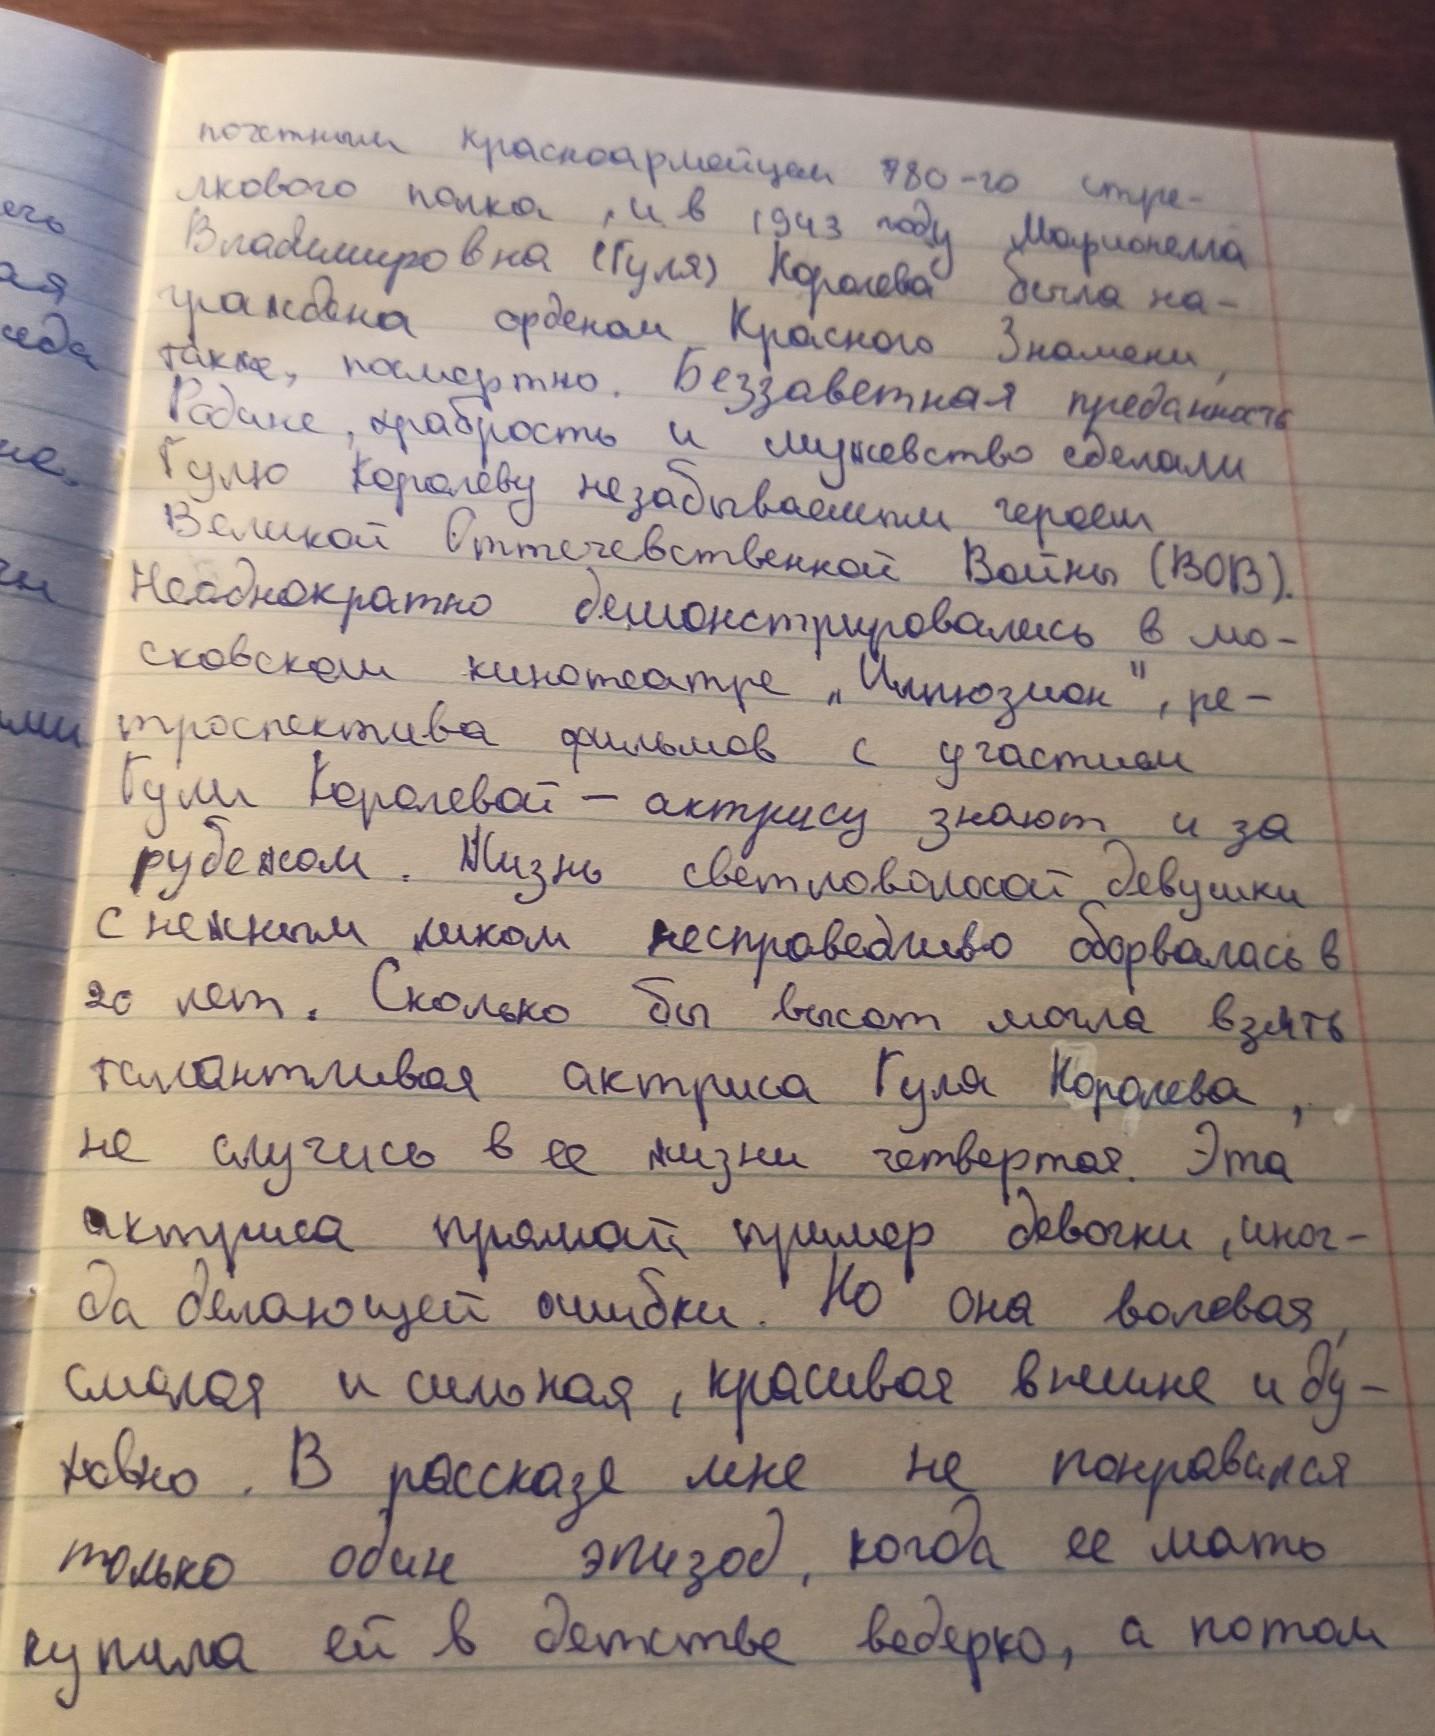 почетным красноармейцем 780-го стре-
лкового полка, и в 1943 году Марионелла
Владимировна (Гуля) Королева была на-
граждена орденом Красного Знамени,
также, посмертно. Беззаветная преданность
Родине, храбрость и мужевство сделали
Гулю Королеву незабываемым героем
Великой Оттечевственной Войны (ВОВ).
Неоднократно демонстрировались в мо-
сковском кинотеатре „Иллюзион", ре-
троспектива фильмов с участием
Гули Королевой – актрису знают и за
рубежом. Жизнь светловолосой девушки
с нежным ликом несправедливо оборвалась в
20 лет. Сколько бы высот могла взять
талантливая актриса Гуля Королева,
не случись в ее жизни четвертая. Эта
актриса прямой пример девочки, иног-
да делающей ошибки. Но она волевая,
смелая и сильная, красивая внешне и ду-
ховно. В рассказе мне не понравился
только один эпизод, когда ее мать
купила ей в детстве ведерко, а потом